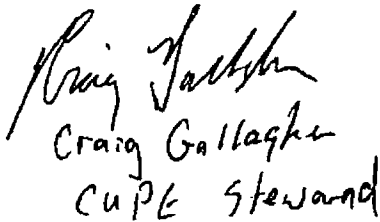 Craig Gallagher
Craig Gallagher
CUPE Steward